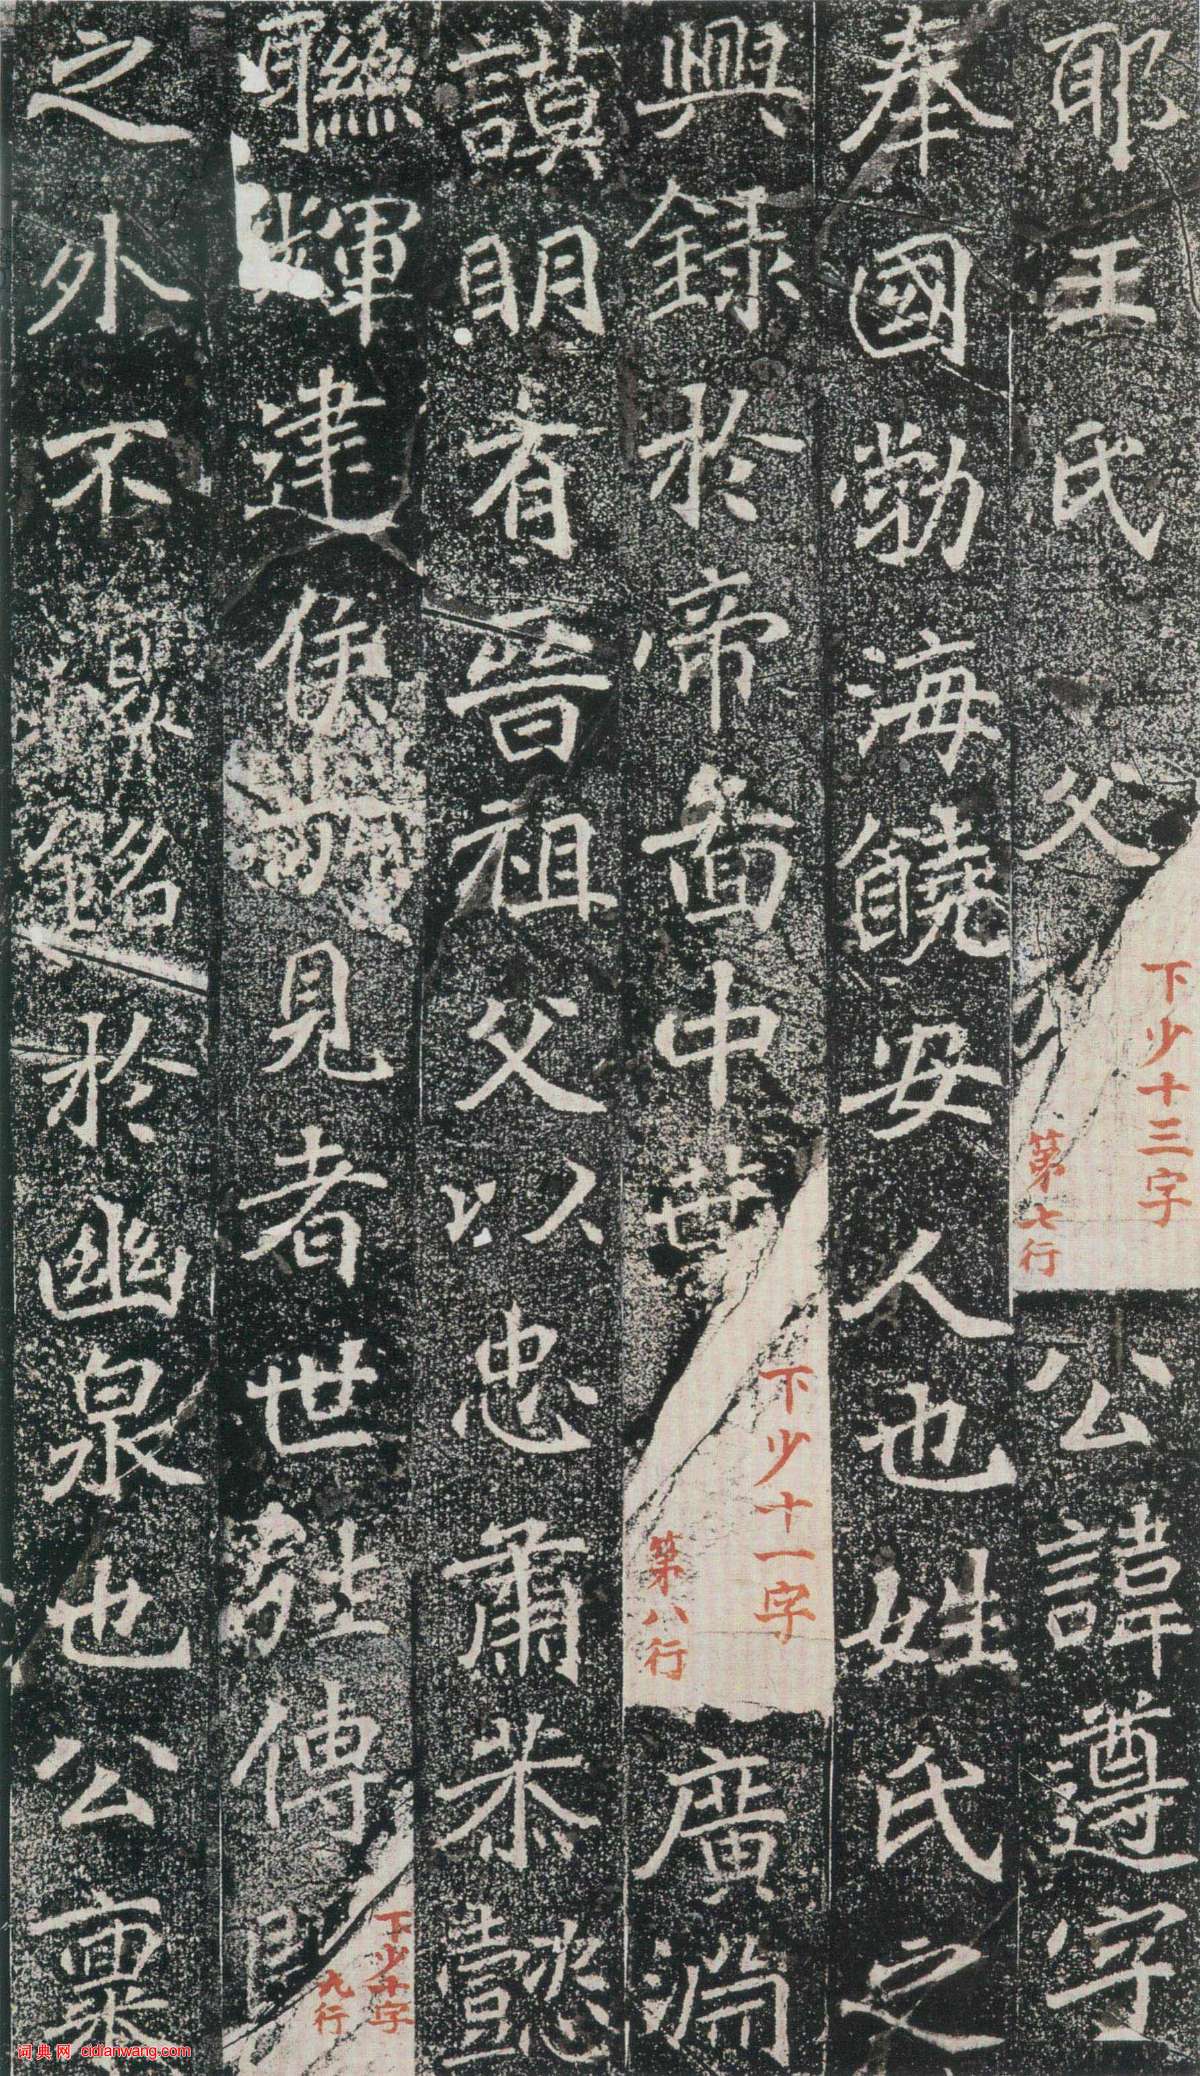 耶王氏父
下少十三字
第七行
公諱遵字
奉國勃海饒安人也姓氏之
興録於帝啚中
下少十一字
第八行
廣淵
謨明有晉祖父以忠肅恭懿
聯輝建侯見者世傳
下少十字
九行
之外不復銘於幽泉也公稟
词典网 cidianwang.com